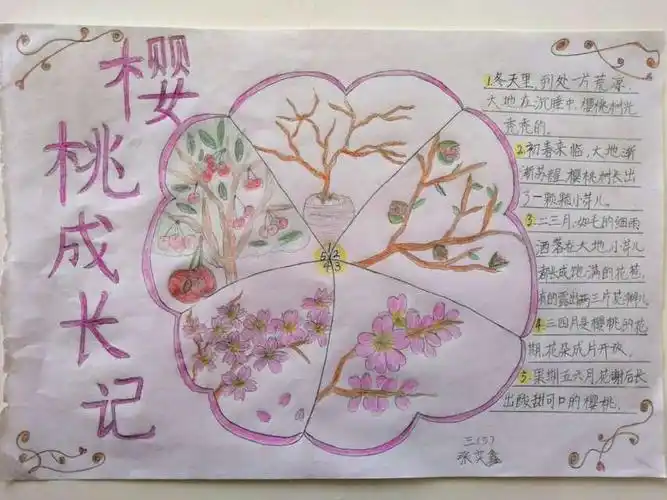 樱桃成长记
1.冬天里,到处一片荒凉,
大地在沉睡中,樱桃树光
秃秃的。
2.初春来临,大地渐
渐苏醒,樱桃树长出
了一颗颗小芽儿。
3.二三月,如毛的细雨
洒落在大地,小芽儿
都长成饱满的花苞,
有的露出两三片花瓣儿
4.三四月是樱桃的花
期,花朵成片开放。
5.果期五六月,花谢后长
出酸甜可口的樱桃。
1
2
3
4
5
三(5)
张奕鑫